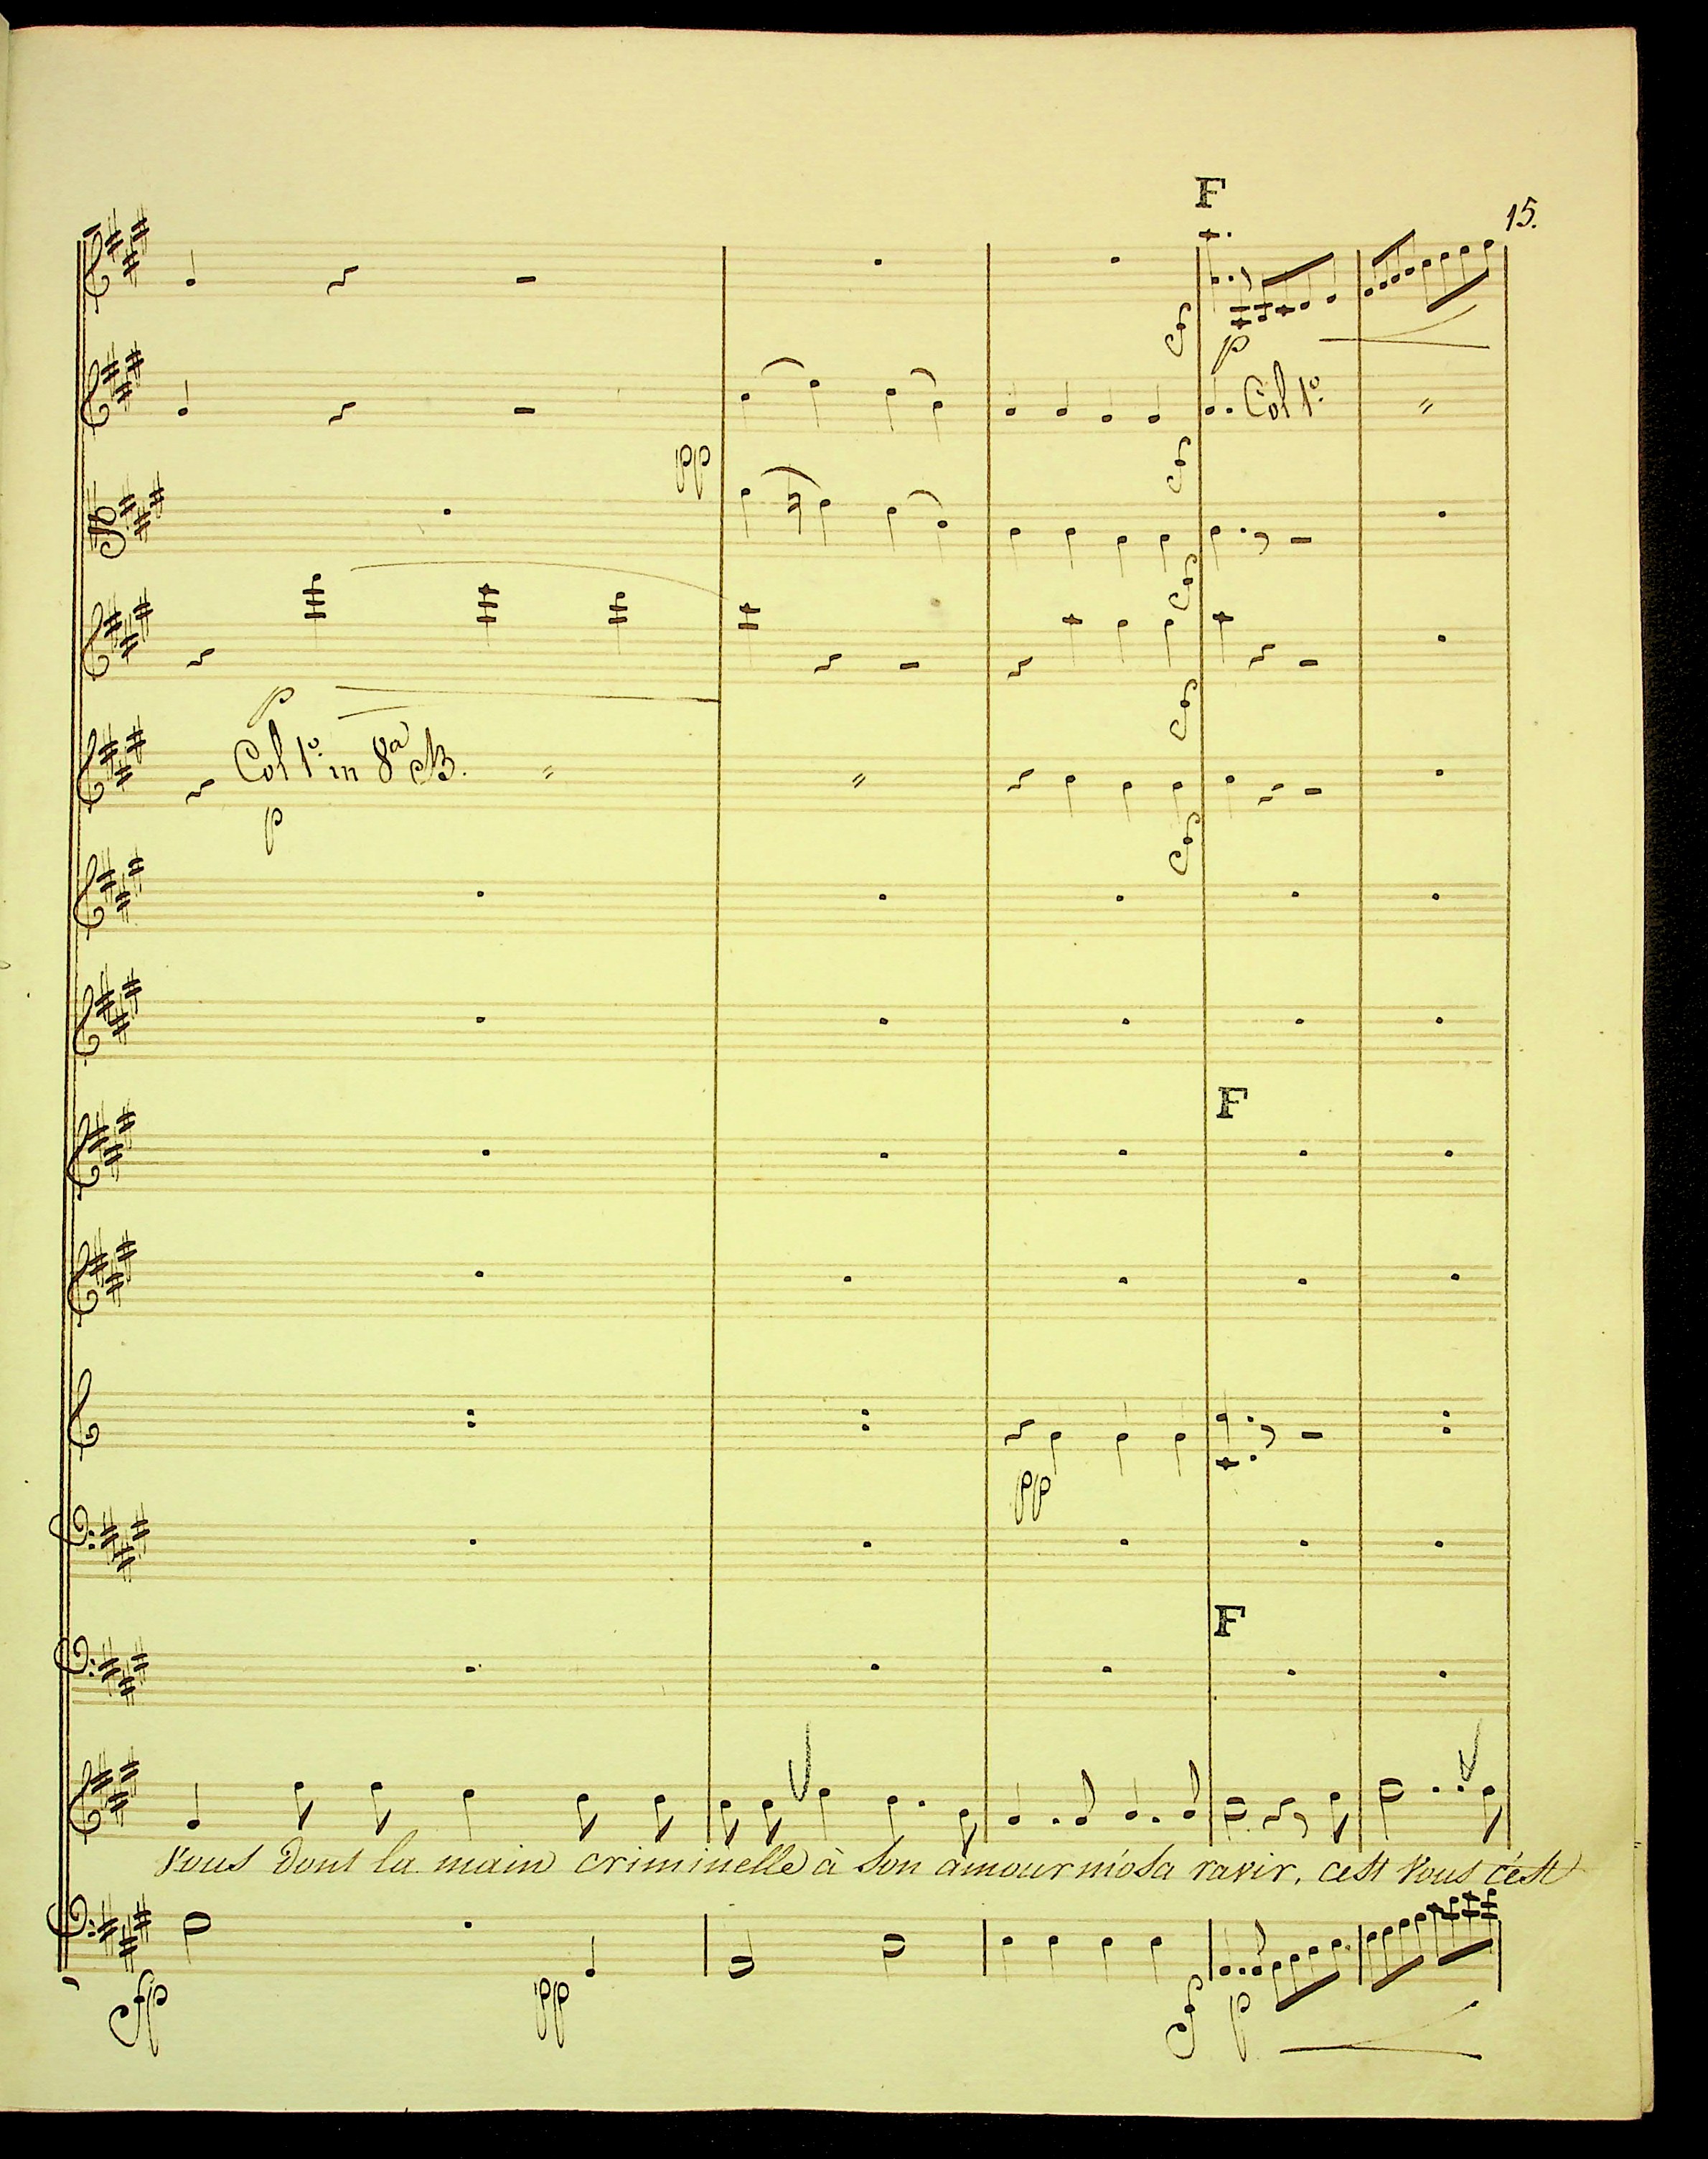 F
15.
p
Col 1º
pp
p
Col 1º in 8ª B.
p
F
pp
F
Vous dont la main criminelle à son amour m'osa ravir, c'est Vous c'est
fp
pp
f p